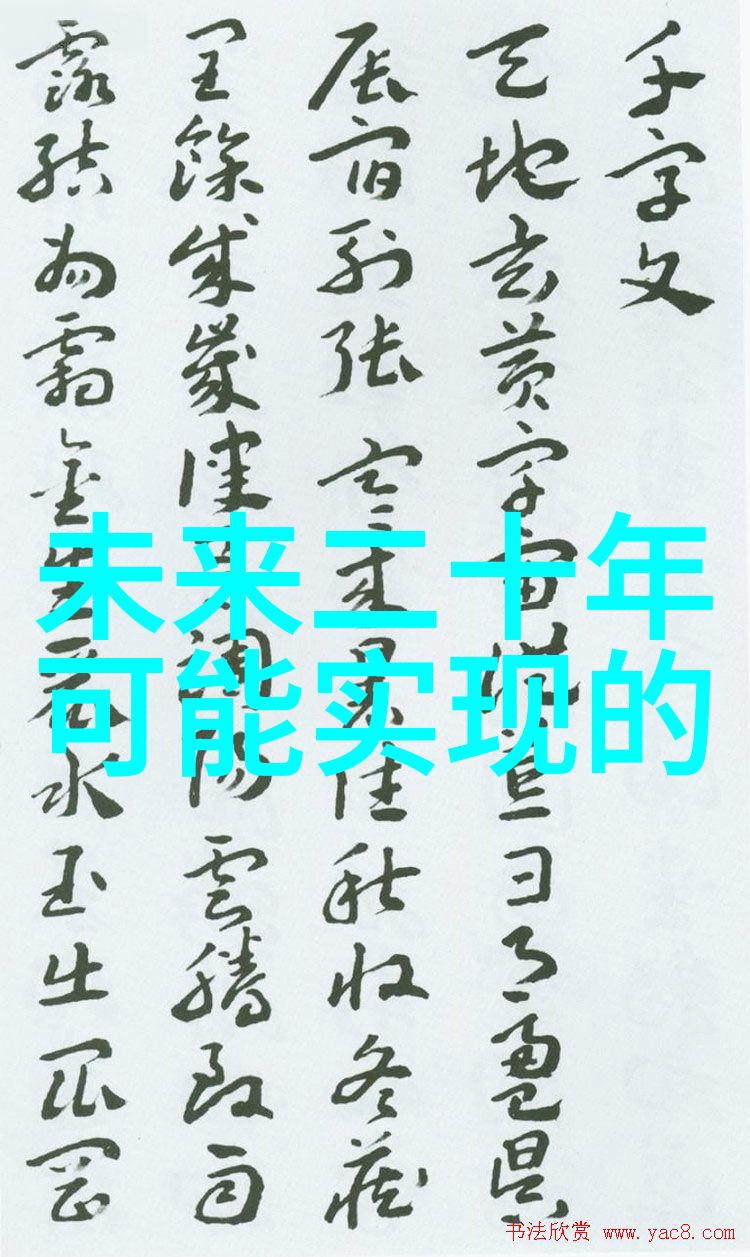 千字文
天地玄黄宇宙洪荒日月盈昃
辰宿列張寒来暑往秋收冬藏
閏餘成歲律吕調陽雲騰致雨
露結為霜金生麗水玉出崑岡
未来二十年
可能实现的
书法欣赏 www.yac8.com